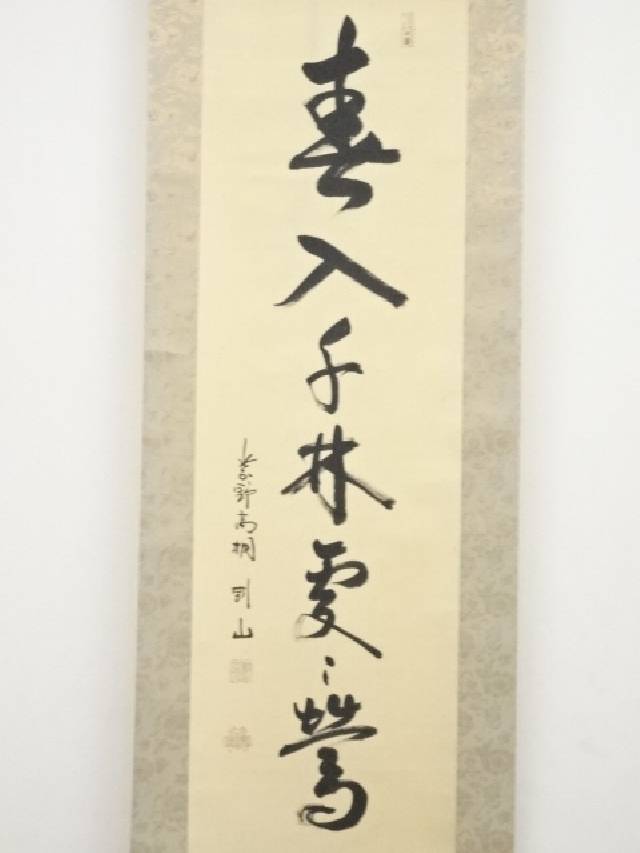 春入千林處〻鶯
紫野高桐剛山